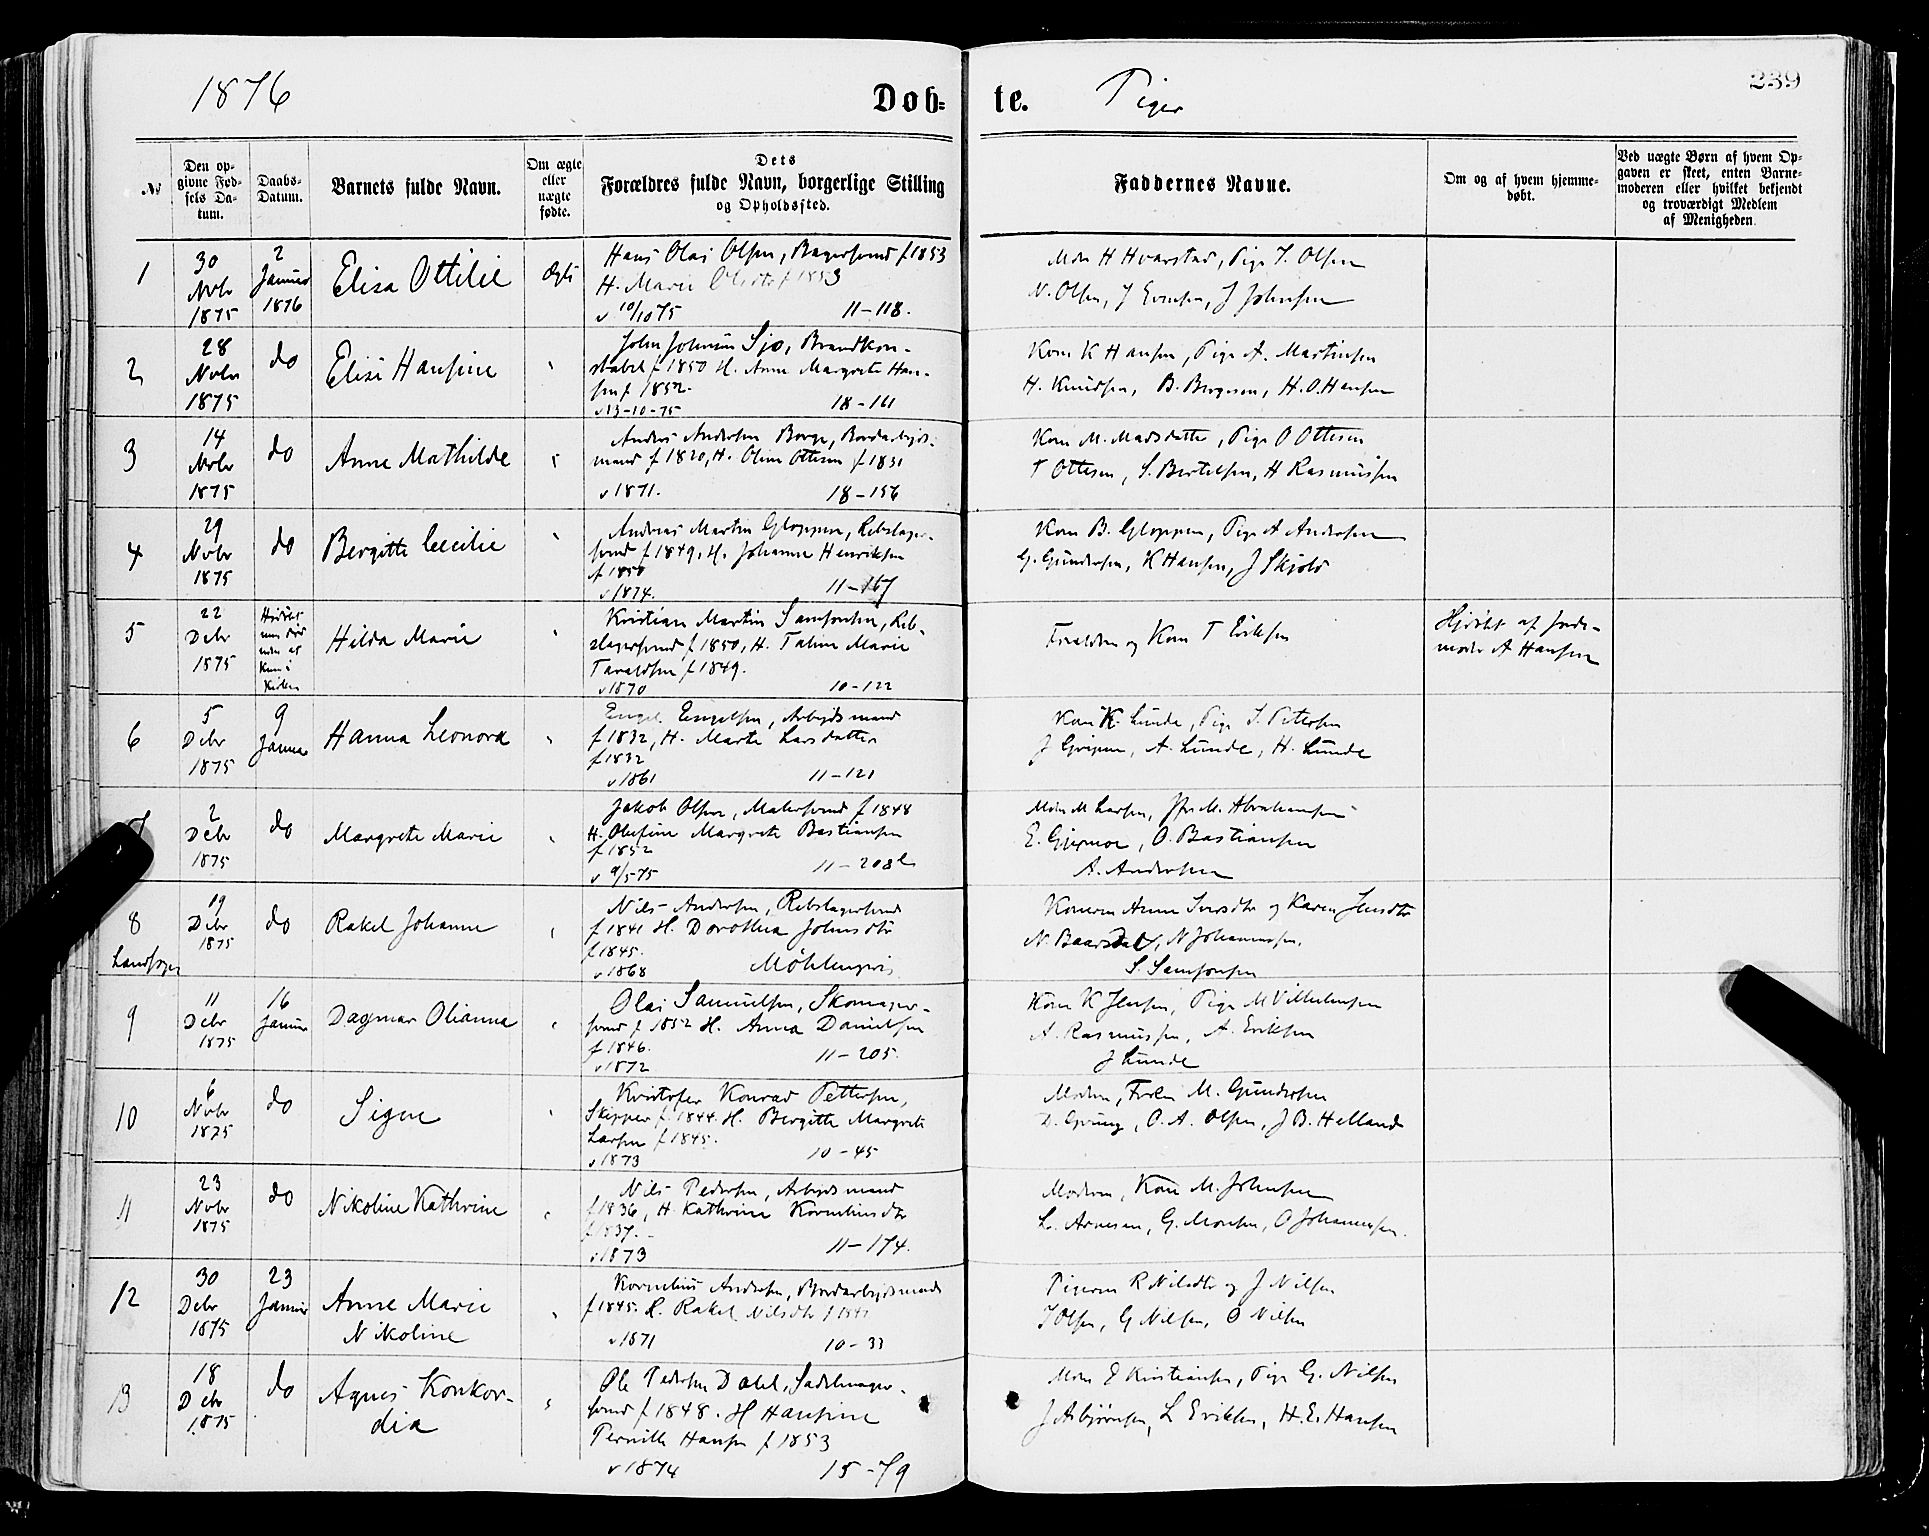 1876
Døb-
te.
Piger
239
№
Den op-
givne Fød-
sels Da-
tum.
Daabs-
Datum.
Barnets fulde Navn.
Om ægte
eller
uægte
fødte.
Dets
Forældres fulde Navn, borgerlige Stilling
og Opholdssted.
Faddernes Navne.
Om og af hvem hjemme-
døbt.
Ved uægte Børn af hvem Op-
gaven er skeet, enten Barne-
moderen eller hvilket bekjendt
og troværdigt Medlem
af Menigheden.
1
30
Nvbr
1875
2
Januar
1876
Elisa Ottilie
Ægte
Hans Olai Olsen, Bagersvend f 1853
H. Marie f 1853
v 10/10 75 11-118.
H Hvarstad, Pige T. Olsen
N. Olsen, J Evensen, J Johnsen
2
28
Nvbr
1875
do
Elise Hansine
John Johnsen Sjo, Brandkon-
stabel f 1850 H. Anne Margrete Han-
sen f 1852.
v 13-10-75 18-161
Kone K Hansen, Pige A. Martinsen
H. Knudsen, B. Bergesen, H. O. Hansen
3
14
Nvbr
1875
do
Anne Mathilde
Anders Andersen Borge, Bordarbejds-
mand f 1820, H. Oline Ottesen f 1831
v 1871. 18-156
Kone M. Madsdatter, Pige O Ottesen
T Ottesen, S. Bertelsen, H Rasmussen
4
29
Nvbr
1875
do
Bergitte Cecilie
Andreas Martin Gloppen, Rebslager-
svend f 1849, H. Johanne Henriksen
f 1850
v 1874. 11-167
Kone B. Gloppen, Pige A Andersen
G. Gundersen, K Hansen, J Skjold
5
22
Debr
1875
Kirken
Hilda Marie
Kristian Martin Samsonsen, Reb-
slagersvend f 1850, H. Taline Marie
Taraldsen f 1849.
v 1870 10-122
Forældre og Kone T Eriksen
Hjdøbt af Jorde-
moder A Hansen
6
5
Debr
1875
9
Januar
Hanna Leonora
Engel Engelsen, Arbejdsmand
f 1832, H. Marte Larsdatter
f 1832
v 1861 11-121
Kone K. Lunde, Pige S. Pettersen
J Gripsen, A. Lunde, H. Lunde
2
Debr
1875
do
Margrete Marie
Jakob Olsen, Malersvend f 1848
H. Olefine Margrete Bastiansen
f 1852
v 9/5-75 11-208b
M Larsen, M. Abrahamsen
E. Gjermoe, O. Bastiansen
A. Andersen
8
Landsogn
19
Debr
1875
do
Rakel Johanne
Nils Andersen, Rebslagersvend
f 1841 H. Dorothea Johnsdtr
f 1845.
v 1868
Konerne Anne Iversdtr og Karen Jensdtr
N. Baarsdal, N Johannessen,
S. Samsonsen
9
11
Debr
1875
16
Januar
Dagmar Olianna
Olai Samuelsen, Skomager-
svend f 1852 H. Anna Danielsen
f 1846.
v 1872 11-205.
Kone K Jensen, Pige M Villumsen
A. Rasmussen, A. Eriksen
J Lunde
10
6
Nvbr
1875
do
Signe
Kristofer Konrad Pettersen,
Skipper f. 1844. H. Bergitte Margrete
Larsen f 1845.
v 1873 10-45
Moderen, Frøken M. Gundersen
D. Grung, O. A. Olsen, J B. Helland
11
23
Nvbr
1875
do
Nikoline Kathrine
Nils Pedersen, Arbejdsmand
f 1836, H. Kathrine Korneliusdtr
f 1837.
v 1873 11-174.
Moderen, Kone M. Johnsen
L. Arnesen, G. Monsen, O Johannessen.
12
30
Debr
1875
23
Januar
Anne Marie
Nikoline
Kornelius Andersen, Bordarbejdsmand
f 1845. H. Rakel Nilsdtr
v 1871 10-33
Pigerne R Nilsdtr og J Nilsen
J Olsen, G Nilsen, O Nilsen
13
18
Debr
1875
do
Agnes Konkor-
dia
Ole Pedersen Dahl, Sadelmager-
svend f 1848. H Hansine
Pernille Hansen f 1853
v 1874 15-79
E Kristiansen, Pige G. Nilsen
J Asbjørnsen, L Eriksen, H. E. Hansen